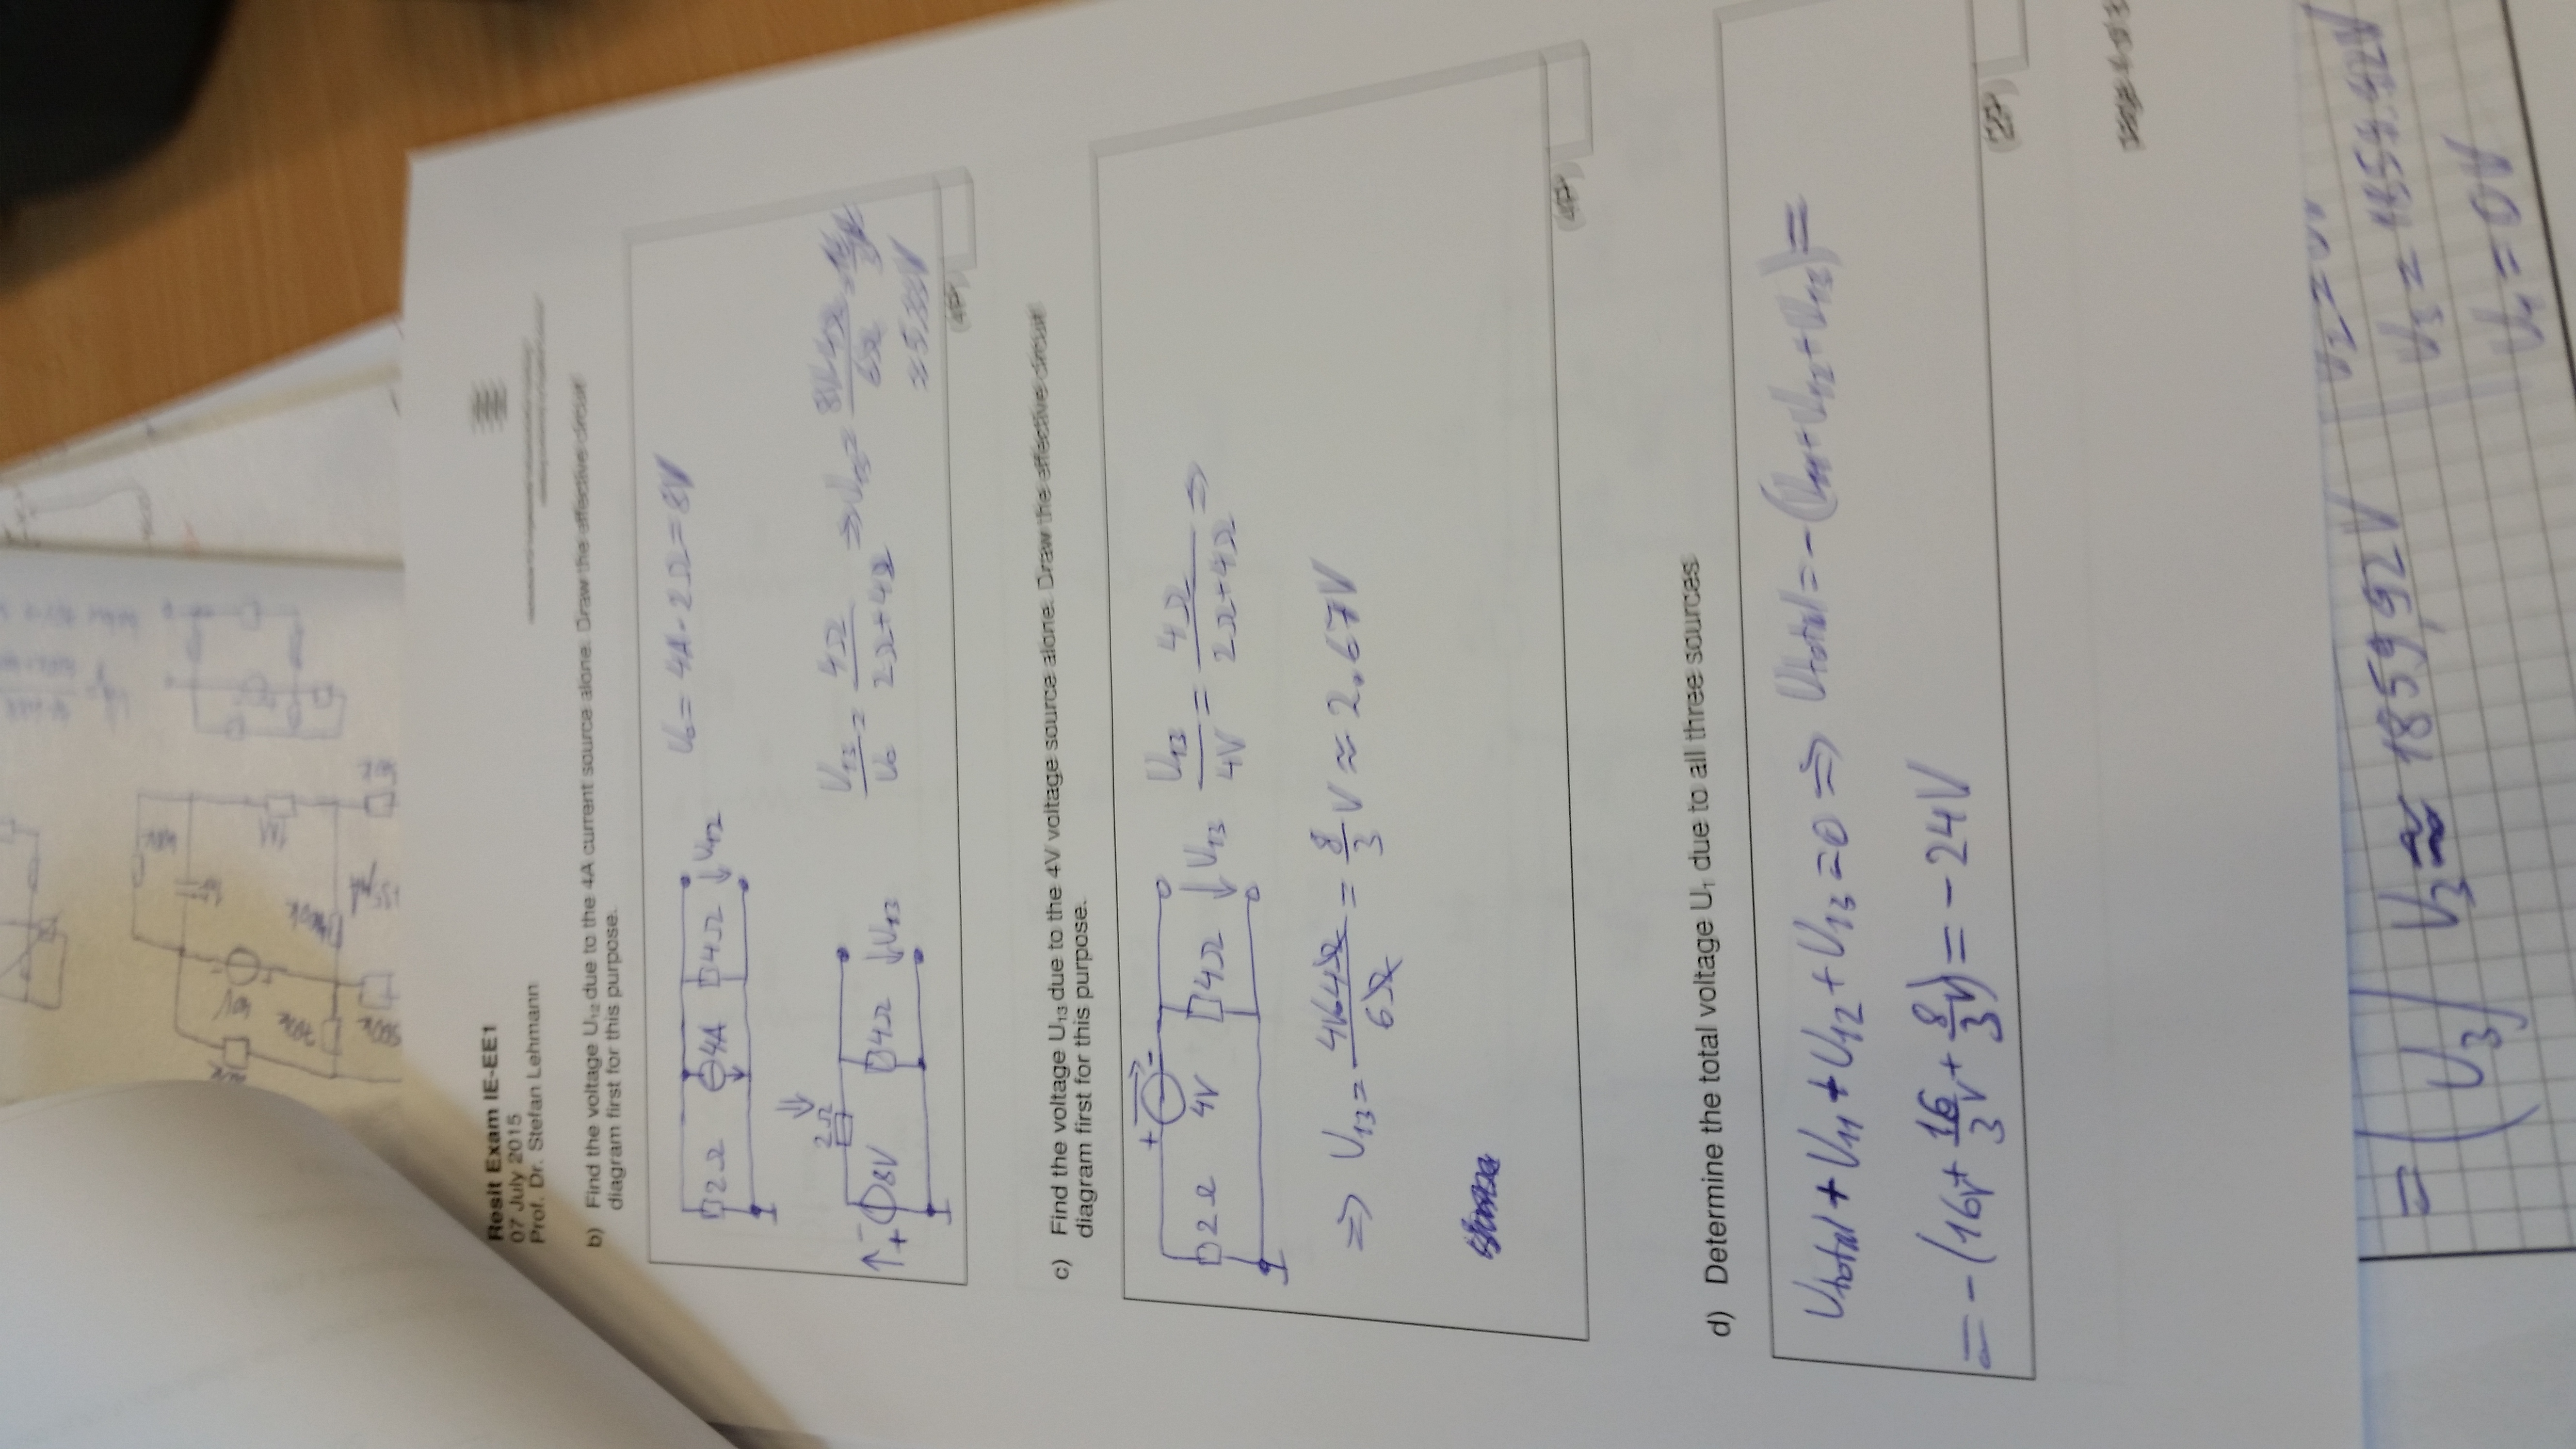 40V
1M
Resit Exam IE-EE1
07 July 2015
Prof. Dr. Stefan Lehmann
b) Find the voltage U12 due to the 4A current source alone. Draw the effective circuit
diagram first for this purpose.
2Ω 4A 4Ω U12
U0 = 4A · 2Ω = 8V
2Ω
- + 8V 4Ω U13
U13/U0 = 4Ω/(2Ω+4Ω) ⇒ U13 = 8V·4Ω/6Ω = 16/3 V
≈ 5.33V
(4P)
c) Find the voltage U13 due to the 4V voltage source alone. Draw the effective circuit
diagram first for this purpose.
+ -
2Ω 4V 4Ω U13
U13/4V = 4Ω/(2Ω+4Ω) ⇒
⇒ U13 = 4V·4Ω/6Ω = 8/3 V ≈ 2.67V
(4P)
d) Determine the total voltage U1 due to all three sources
Utotal + U11 + U12 + U13 = 0 ⇒ Utotal = -(U11 + U12 + U13) =
= -(16V + 16/3 V + 8/3 V) = -24V
(2P)
page 4 of
= (U3) U3 ≈ 1859,92V
U3 = 1859.92V
= 0V